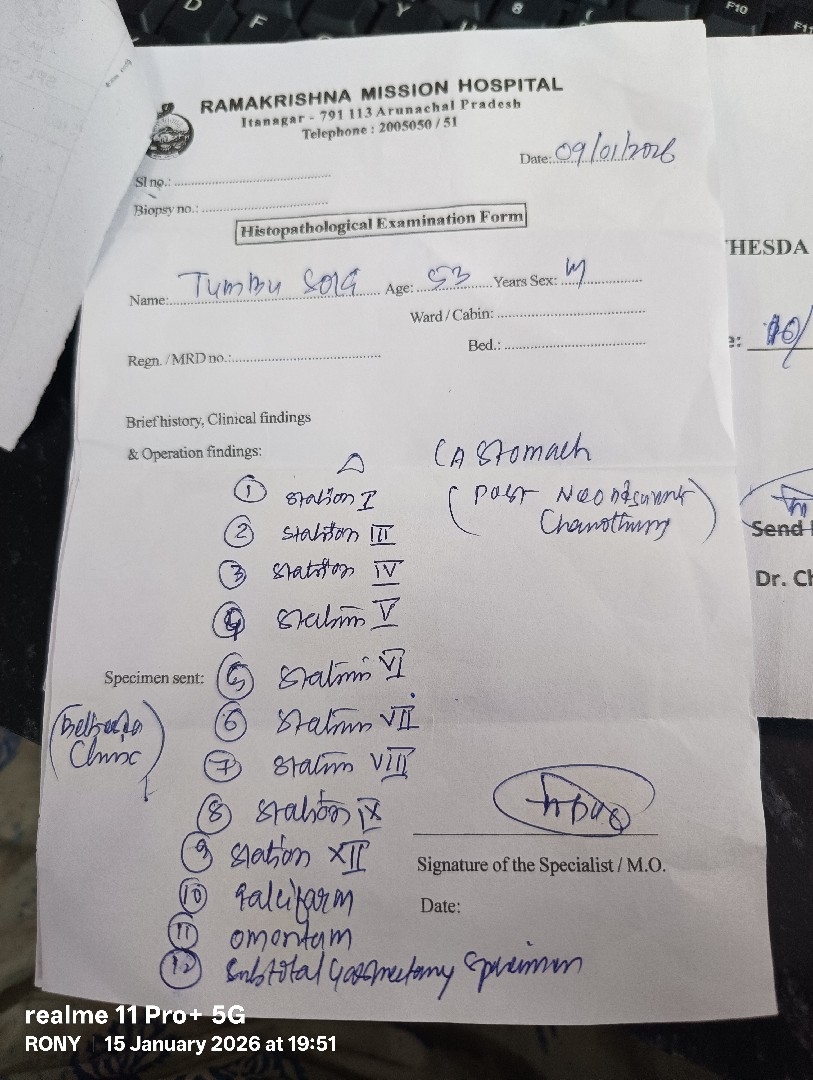 RAMAKRISHNA MISSION HOSPITAL
Itanagar - 791 113 Arunachal Pradesh
Telephone : 2005050 / 51
Date: 09/01/2026
Sl no.:
Biopsy no.:
Histopathological Examination Form
Name: Age: 53 Years Sex: M
Ward / Cabin:
Regn. / MRD no.: Bed.:
Brief history, Clinical findings
& Operation findings: △ CA Stomach
(Post Neoadjuvant
① Station I
② Station III
③ Station IV
④ Station V
Specimen sent: ⑤ Station VI
⑥ Station VII
⑦ Station VIII
Clinic)
⑧ Station IX
⑨ Station XII
Signature of the Specialist / M.O.
⑩
Date:
⑪ omentum
⑫ Subtotal Specimen
HESDA
e: 10/
Send
Dr. Ch
F10
realme 11 Pro+ 5G
RONY | 15 January 2026 at 19:51